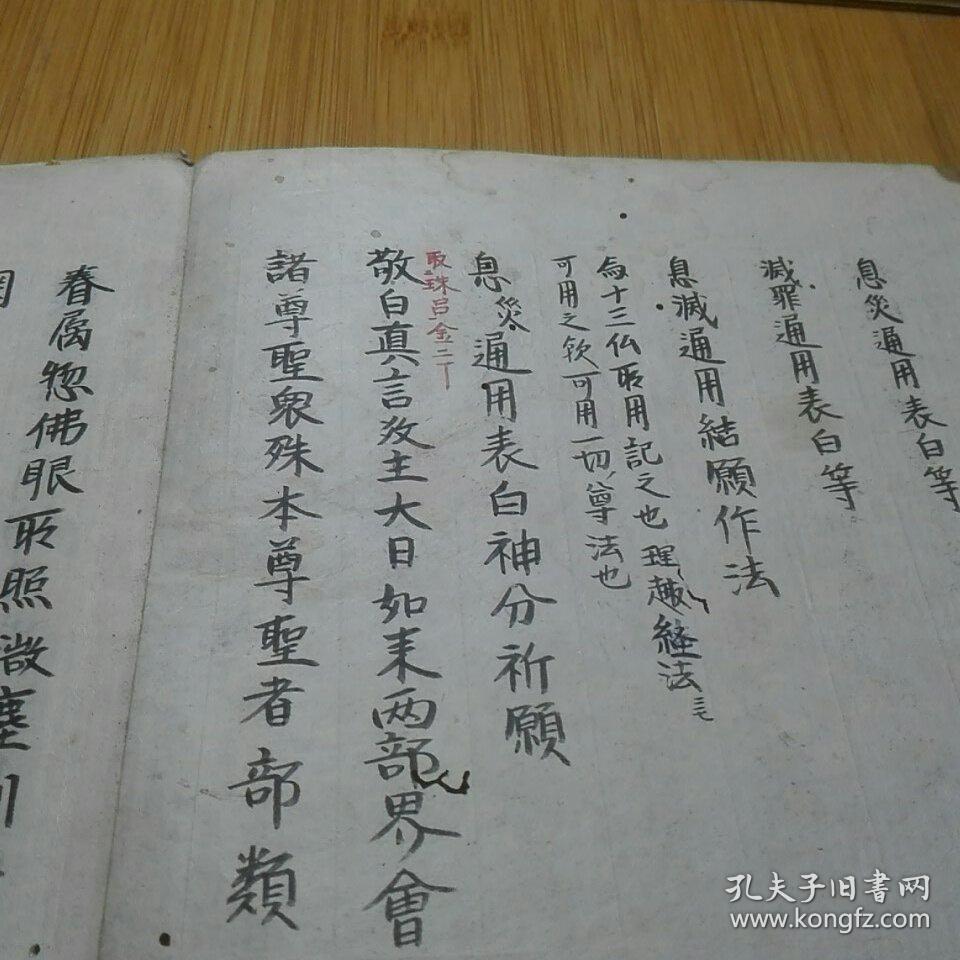 息災通用表白等
滅罪通用表白等
息滅通用結願作法
十三仏所用記之也 理趣経法ニモ
可用之欤可用一切尊法也
息災通用表白神分祈願
取珠呂金二丁
敬白真言教主大日如来両部界會
諸尊聖衆殊本尊聖者部類
眷属惣佛眼所照微塵刹
孔夫子旧书网
www.kongfz.com